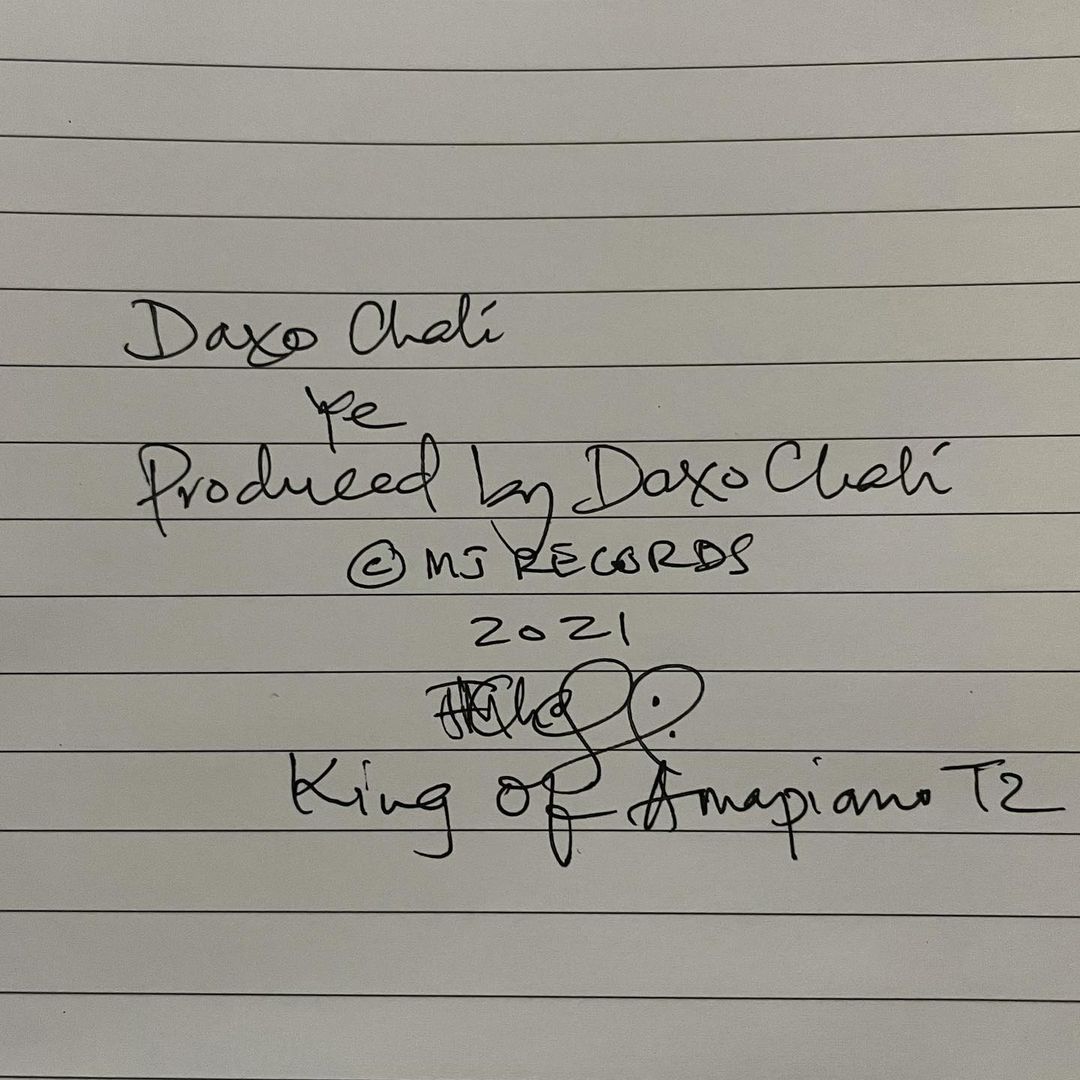 Daxo Chali
Ye
Produced by Daxo Chali
© MJ RECORDS
2021
King of Amapiano TZ